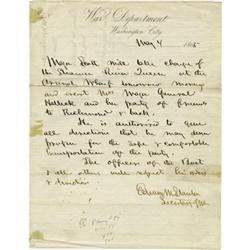 War Department
Washington City,
May 4 1865
Major Scott will take charge of
the Steamer River Queen at the
Arsenal Wharf tomorrow morning
and Mrs Major General
Halleck and her party of
to Richmond & back.
He is authorized to give
all directions that he may deem
proper for the safe & comfortable
transportation of the party.
The officers of the Boat
& all others will respect his orders
& directions
Edwin M Stanton
Secretary of War